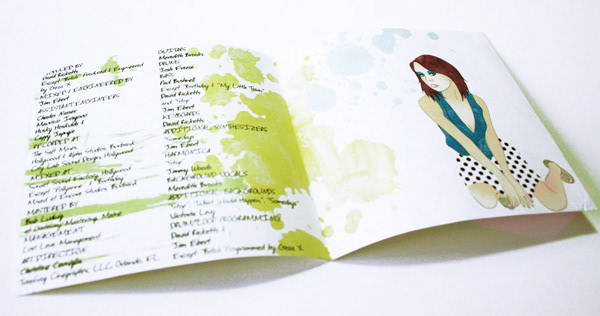 David Ricketts
Except "Bitch" Produced & Engineered
by Geza X
MIXED / ENGINEERED BY
Jim Ebert
ASSISTANT ENGINEERS
Charles Nasser
Mauricio Iragorri
Husky Hoskulds &
Cappy Japngie
RECORDED AT
The Salt Mines,
Hollywood / Alpha Studios, Burbank
City Lab Sound Design, Hollywood
MIXED AT
Sunset Sound Factory, Hollywood
Except "Pollyanne" & "Birthday"
Mixed at Encore Studios, Burbank
MASTERED BY
Bob Ludwig
at Gateway Mastering, Maine
MANAGEMENT
Lori Leve Management
ART DIRECTION
Christine Cerniglia
L.L.C. Orlando, FL
GUITARS
Meredith Brooks
DRUMS
Josh Freese
BASS
Paul Bushnell
Except "Birthday" & "My Little Town"
David Ricketts
and "Stop"
Jim Ebert
KEYBOARDS
David Ricketts
ADDITIONAL SYNTHESIZERS
"Somedays"
Jim Ebert
HARMONICA
"Stop"
Jimmy Woods
BACKGROUND VOCALS
Meredith Brooks
ADDITIONAL BACKGROUNDS
"What Would Happen", "Somedays"
Victoria Levy
DRUM/LOOP PROGRAMMING
David Ricketts &
Jim Ebert
Except "Bitch" Programmed by Geza X